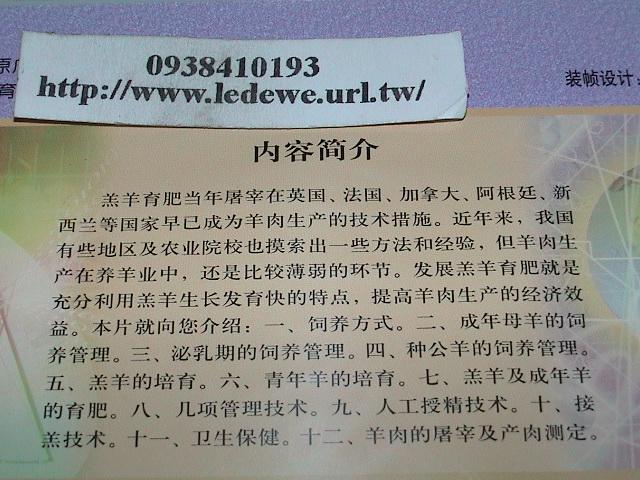 0938410193
http://www.ledewe.url.tw/
装帧设计:
育
内容简介
羔羊育肥当年屠宰在英国、法国、加拿大、阿根廷、新
西兰等国家早已成为羊肉生产的技术措施。近年来，我国
有些地区及农业院校也摸索出一些方法和经验，但羊肉生
产在养羊业中，还是比较薄弱的环节。发展羔羊育肥就是
充分利用羔羊生长发育快的特点，提高羊肉生产的经济效
益。本片就向您介绍：一、饲养方式。二、成年母羊的饲
养管理。三、泌乳期的饲养管理。四、种公羊的饲养管理。
五、羔羊的培育。六、青年羊的培育。七、羔羊及成年羊
的育肥。八、几项管理技术。九、人工授精技术。十、接
羔技术。十一、卫生保健。十二、羊肉的屠宰及产肉测定。